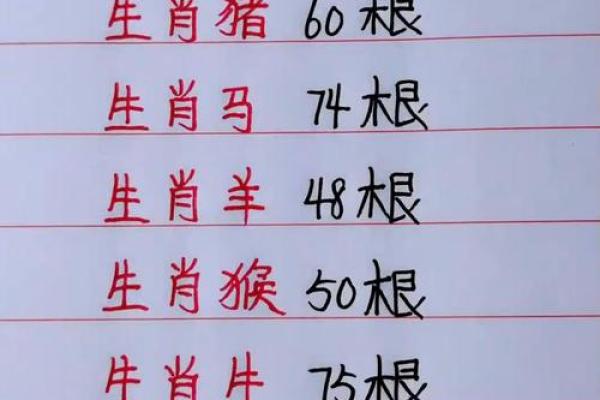 生肖猪 60根
生肖马 74根
生肖羊 48根
生肖猴 50根
生肖牛 75根